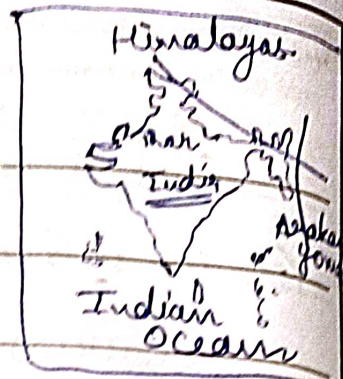 Himalayas
India
Arakan
Yoma
Indian
Ocean